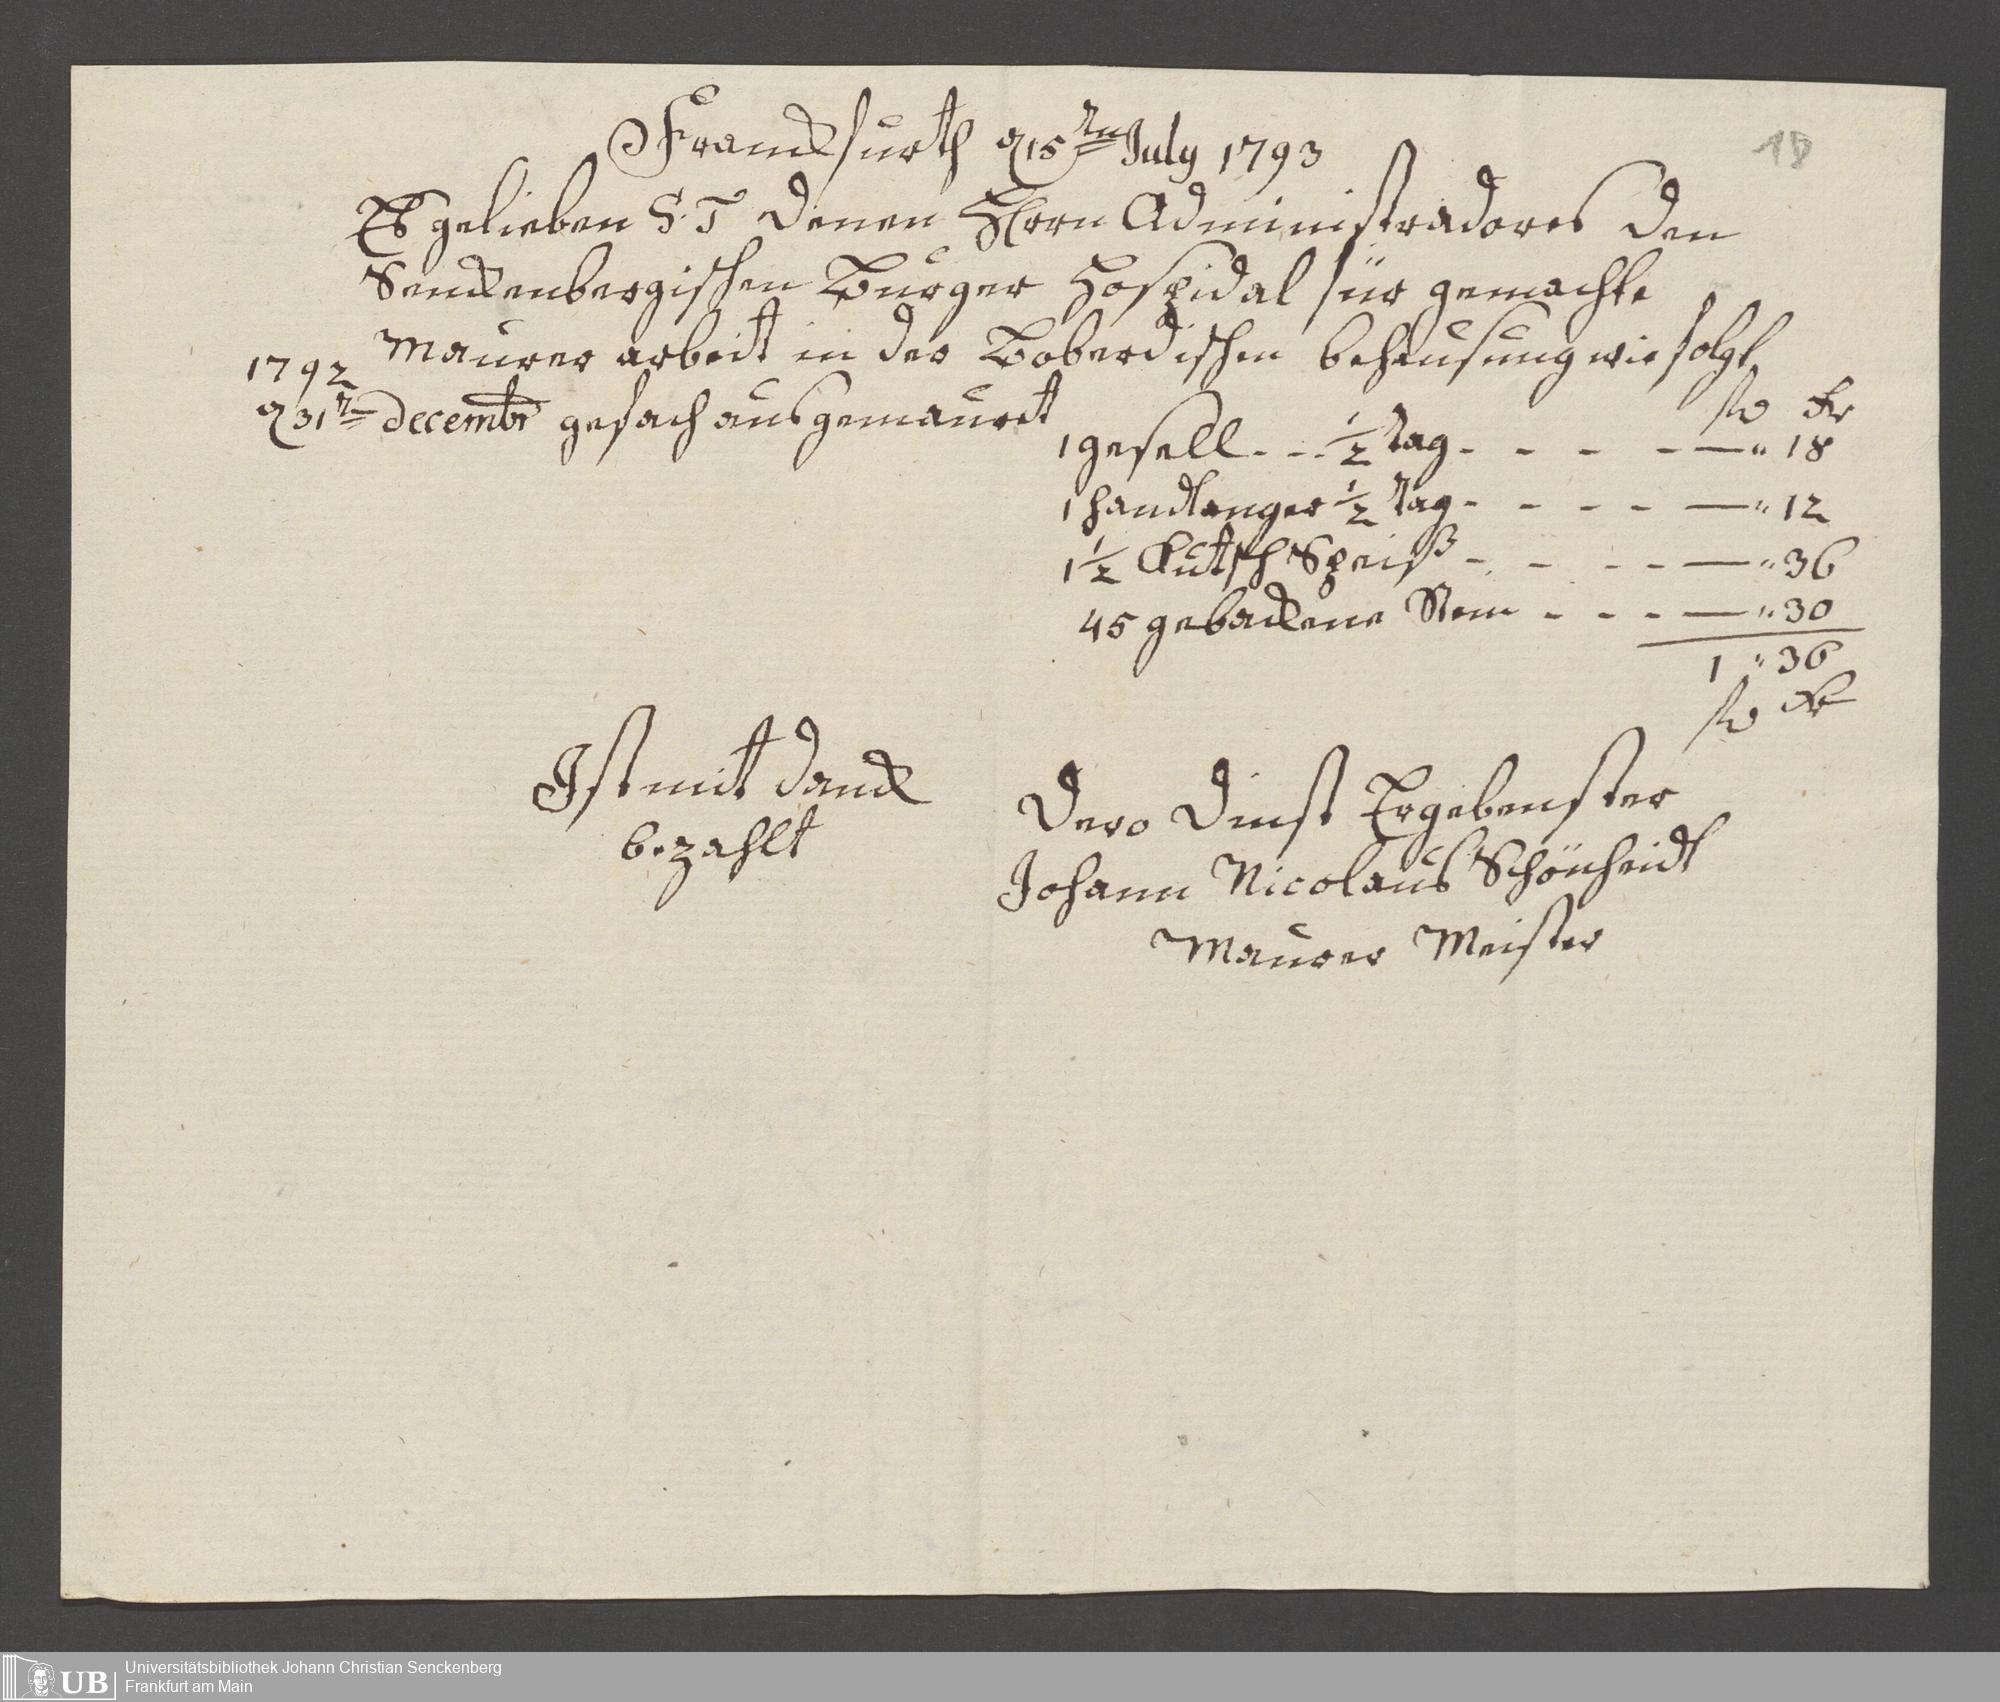 Franckfurth d 15ten July 1793
18
Es gelieben S. T denen Herrn Administradores den
Senckenbergischen Burger Hospidal für gemachte
Maurer arbeit in der Boberdischen behausung wie folgt
1792
d 31ten decembr gefach aus gemaurt
fl Xr
1 gesell - - - 1/2 tag - - - - — " 18
1 handlanger 1/2 tag - - - - — " 12
1 1/2 Kütsch Speiß - - - - — " 36
45 gebackene Stein - - - — " 30
1 " 36
fl Xr
Ist mit danck
bezahlt
Dero Dinst Ergebenster
Johann Nicolaus Schönheidt
Maurer Meister
UB
Universitätsbibliothek Johann Christian Senckenberg
Frankfurt am Main